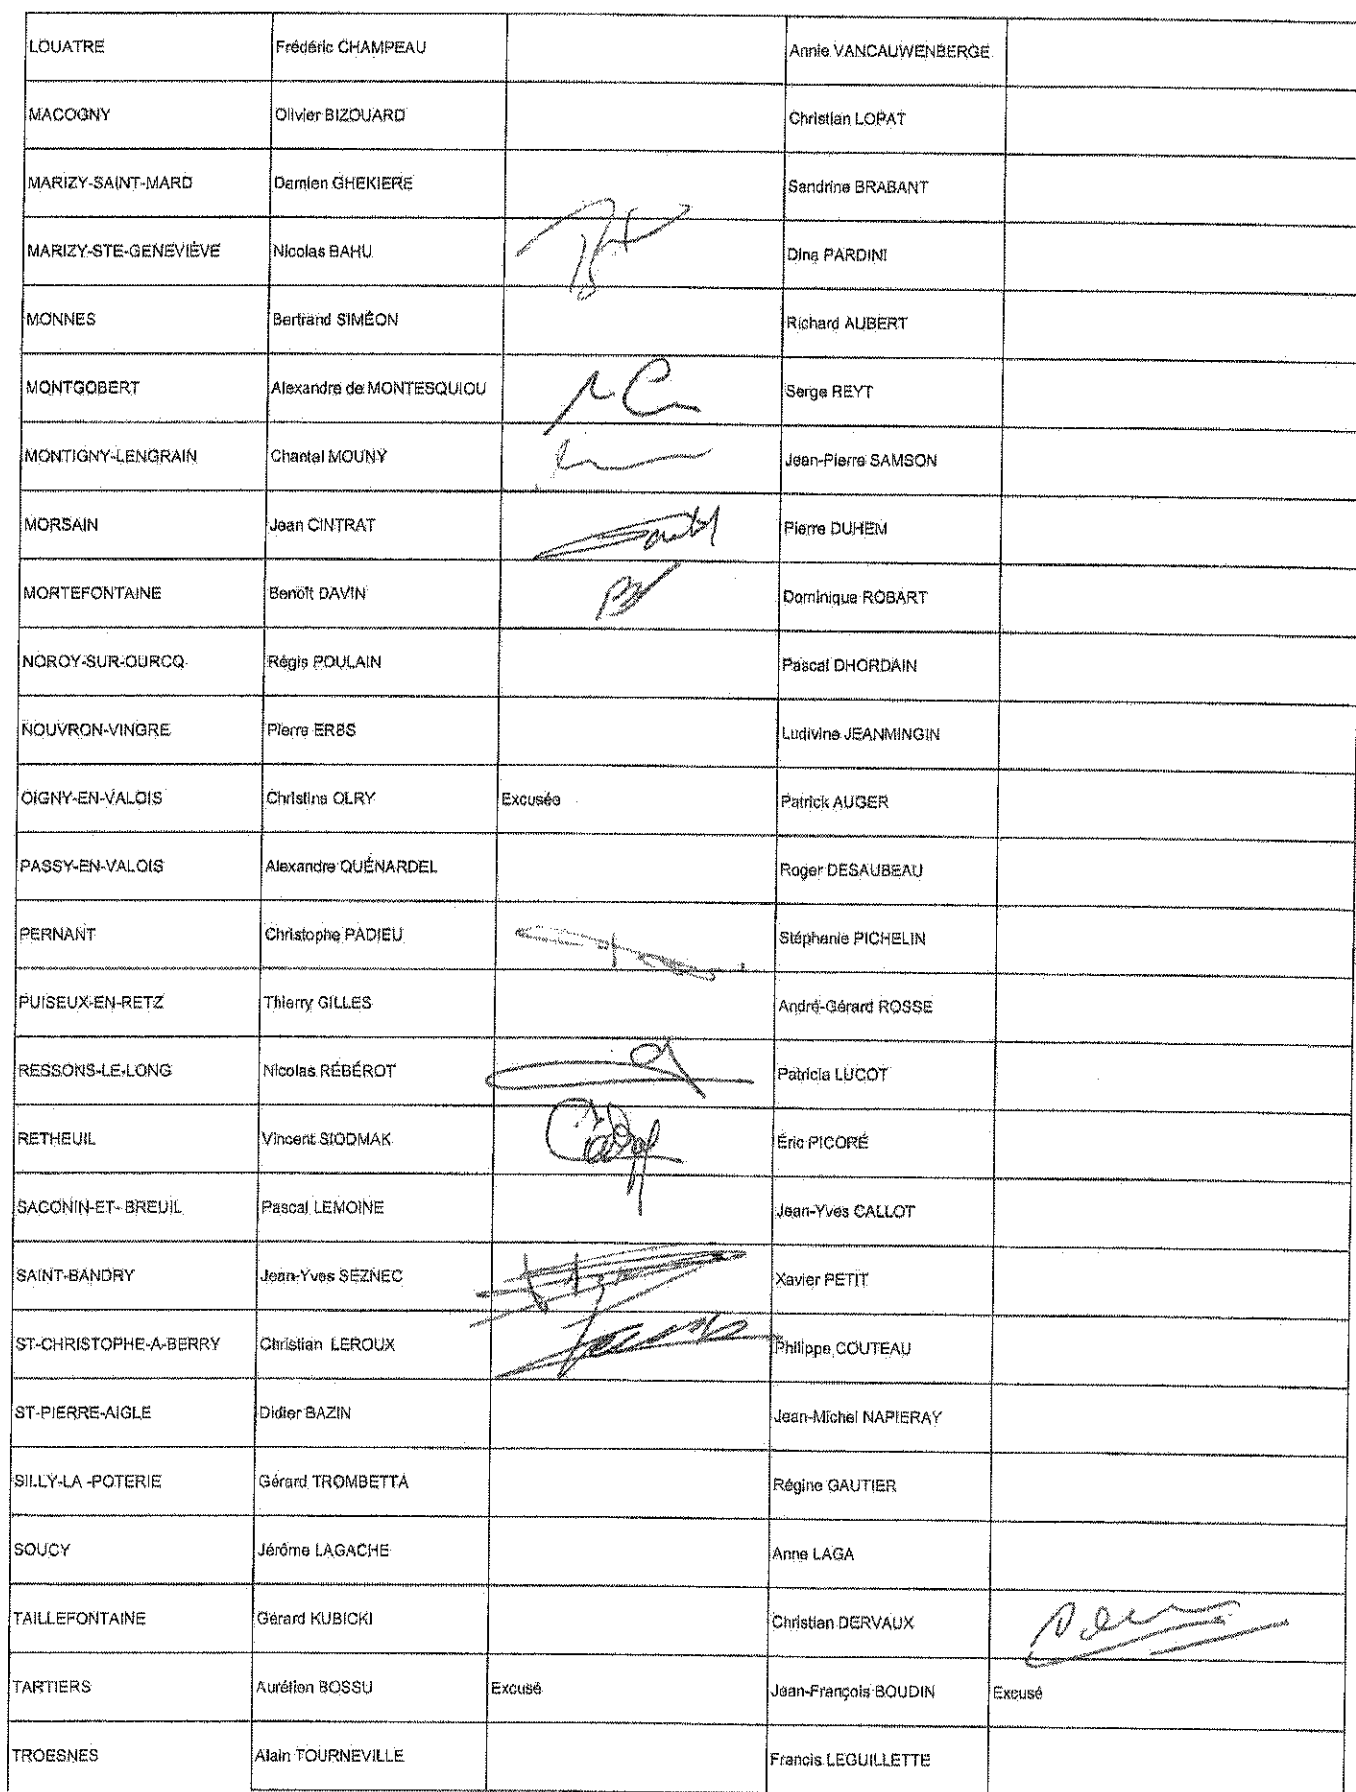 LOUATRE Frédéric CHAMPEAU Annie VANCAUWENBERGE
MACOGNY Olivier BIZOUARD Christian LOPAT
MARIZY-SAINT-MARD Damien GHEKIERE Sandrine BRABANT
MARIZY-STE-GENEVIÈVE Nicolas BAHU Dina PARDINI
MONNES Bertrand SIMÉON Richard AUBERT
MONTGOBERT Alexandre de MONTESQUIOU Serge REYT
MONTIGNY-LENGRAIN Chantal MOUNY Jean-Pierre SAMSON
MORSAIN Jean CINTRAT Pierre DUHEM
MORTEFONTAINE Benoît DAVIN Dominique ROBART
NOROY-SUR-OURCQ Régis POULAIN Pascal DHORDAIN
NOUVRON-VINGRE Pierre ERBS Ludivine JEANMINGIN
OIGNY-EN-VALOIS Christine OLRY Excusée Patrick AUGER
PASSY-EN-VALOIS Alexandre QUÉNARDEL Roger DESAUBEAU
PERNANT Christophe PADIEU Stéphanie PICHELIN
PUISEUX-EN-RETZ Thierry GILLES André-Gérard ROSSE
RESSONS-LE-LONG Nicolas RÉBÉROT Patricia LUCOT
RETHEUIL Vincent SIODMAK Éric PICORÉ
SACONIN-ET- BREUIL Pascal LEMOINE Jean-Yves CALLOT
SAINT-BANDRY Jean-Yves SEZNEC Xavier PETIT
ST-CHRISTOPHE-A-BERRY Christian LEROUX Philippe COUTEAU
ST-PIERRE-AIGLE Didier BAZIN Jean-Michel NAPIERAY
SILLY-LA -POTERIE Gérard TROMBETTA Régine GAUTIER
SOUCY Jérôme LAGACHE Anne LAGA
TAILLEFONTAINE Gérard KUBICKI Christian DERVAUX
TARTIERS Aurélien BOSSU Excusé Jean-François BOUDIN Excusé
TROESNES Alain TOURNEVILLE Francis LEGUILLETTE